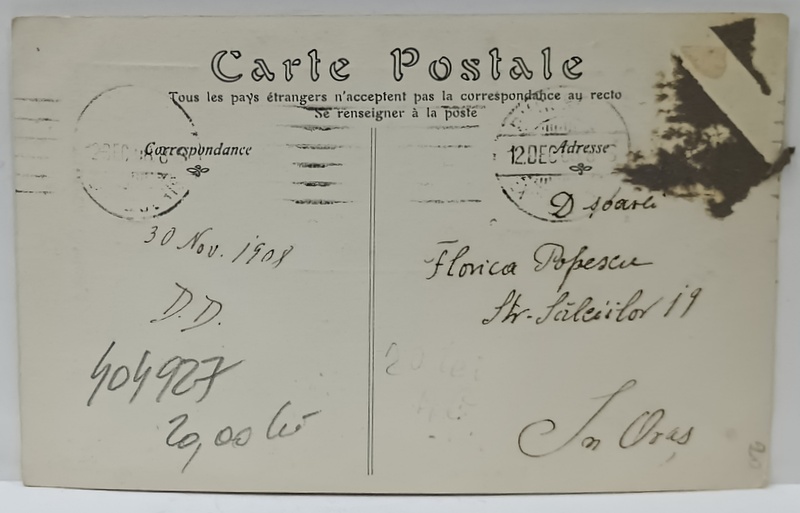 Carte Postale
Tous les pays étrangers n'acceptent pas la correspondance au recto
Se renseigner à la poste
Correspondance
Adresse
12.DEC
30 Nov. 1908
D.D.
404927
20,00 lei
Florica Popescu
Str. Sălciilor 19
In Oraș
20